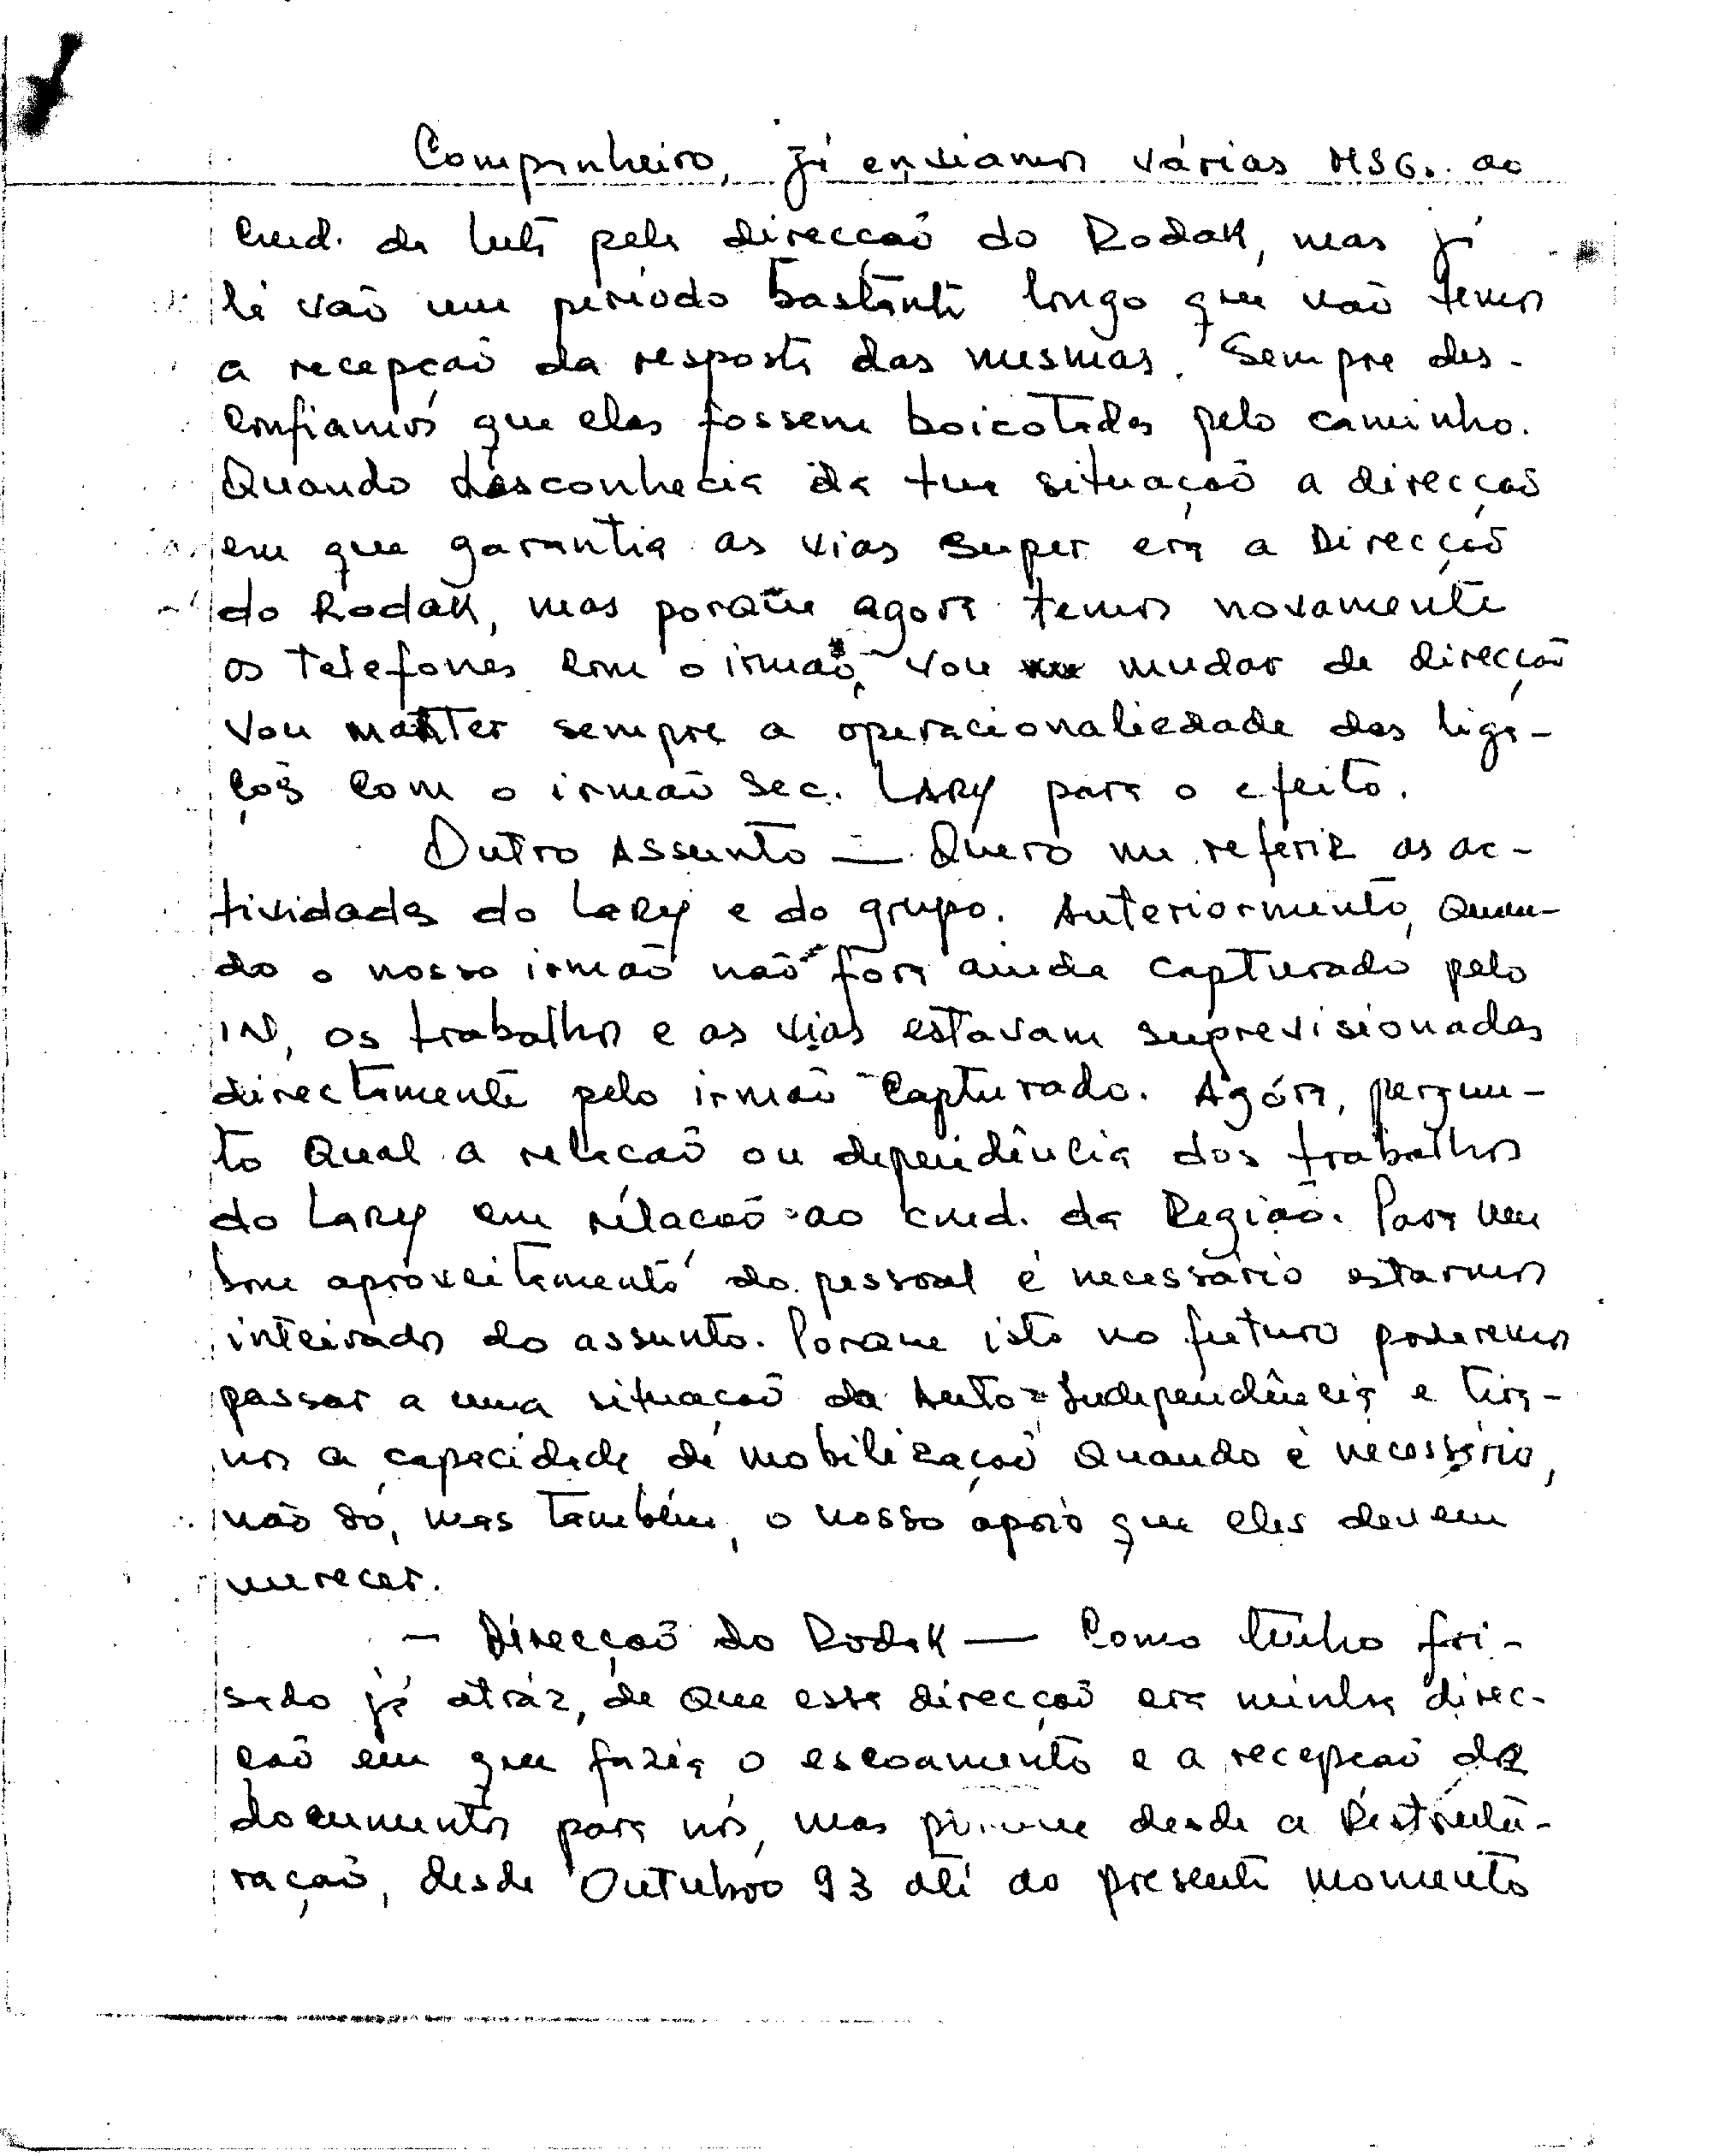 Companheiro, já enviamos várias MSG. ao
Cmd. da luta pela direcção do Rodak, mas já
lá vão um período bastante longo que não temos
a recepção da resposta das mesmas. Sempre des-
confiamos que elas fossem boicotadas pelo caminho.
Quando desconhecia da tua situação a direcção
em que garantia as vias super era a Direcção
do Rodak, mas porque agora temos novamente
os telefones com o irmão, vou mudar de direcção
vou manter sempre a operacionaliedade das liga-
ções com o irmão Sec. LARY para o efeito.
Outro Assunto — Quero me referir as ac-
tividades do Lary e do grupo. Anteriormente, quan-
do o nosso irmão não fora ainda capturado pelo
IN, os trabalhos e as vias estavam suprevisionadas
directamente pelo irmão capturado. Agóra, pergun-
to qual a relacão ou dependência dos trabalhos
do Lary em relacão ao cmd. da Região. Para um
bom aproveitamento do pessoal é necessário estarmos
inteirados do assunto. Porque isto no futuro poderemos
passar a uma situação da Auto-Independência e tira-
nos a capacidade de mobilização quando é necessário,
não só, mas também, o nosso apoio que eles devem
merecer.
— Direcção do Rodak — Como tinho fri-
sado já atráz, de que essa direcção era minha direc-
cão em que fazia o escoamento e a recepção de
documentos para nós, mas porque desde a Restrutu-
ração, desde Outubro 93 até ao presente momento